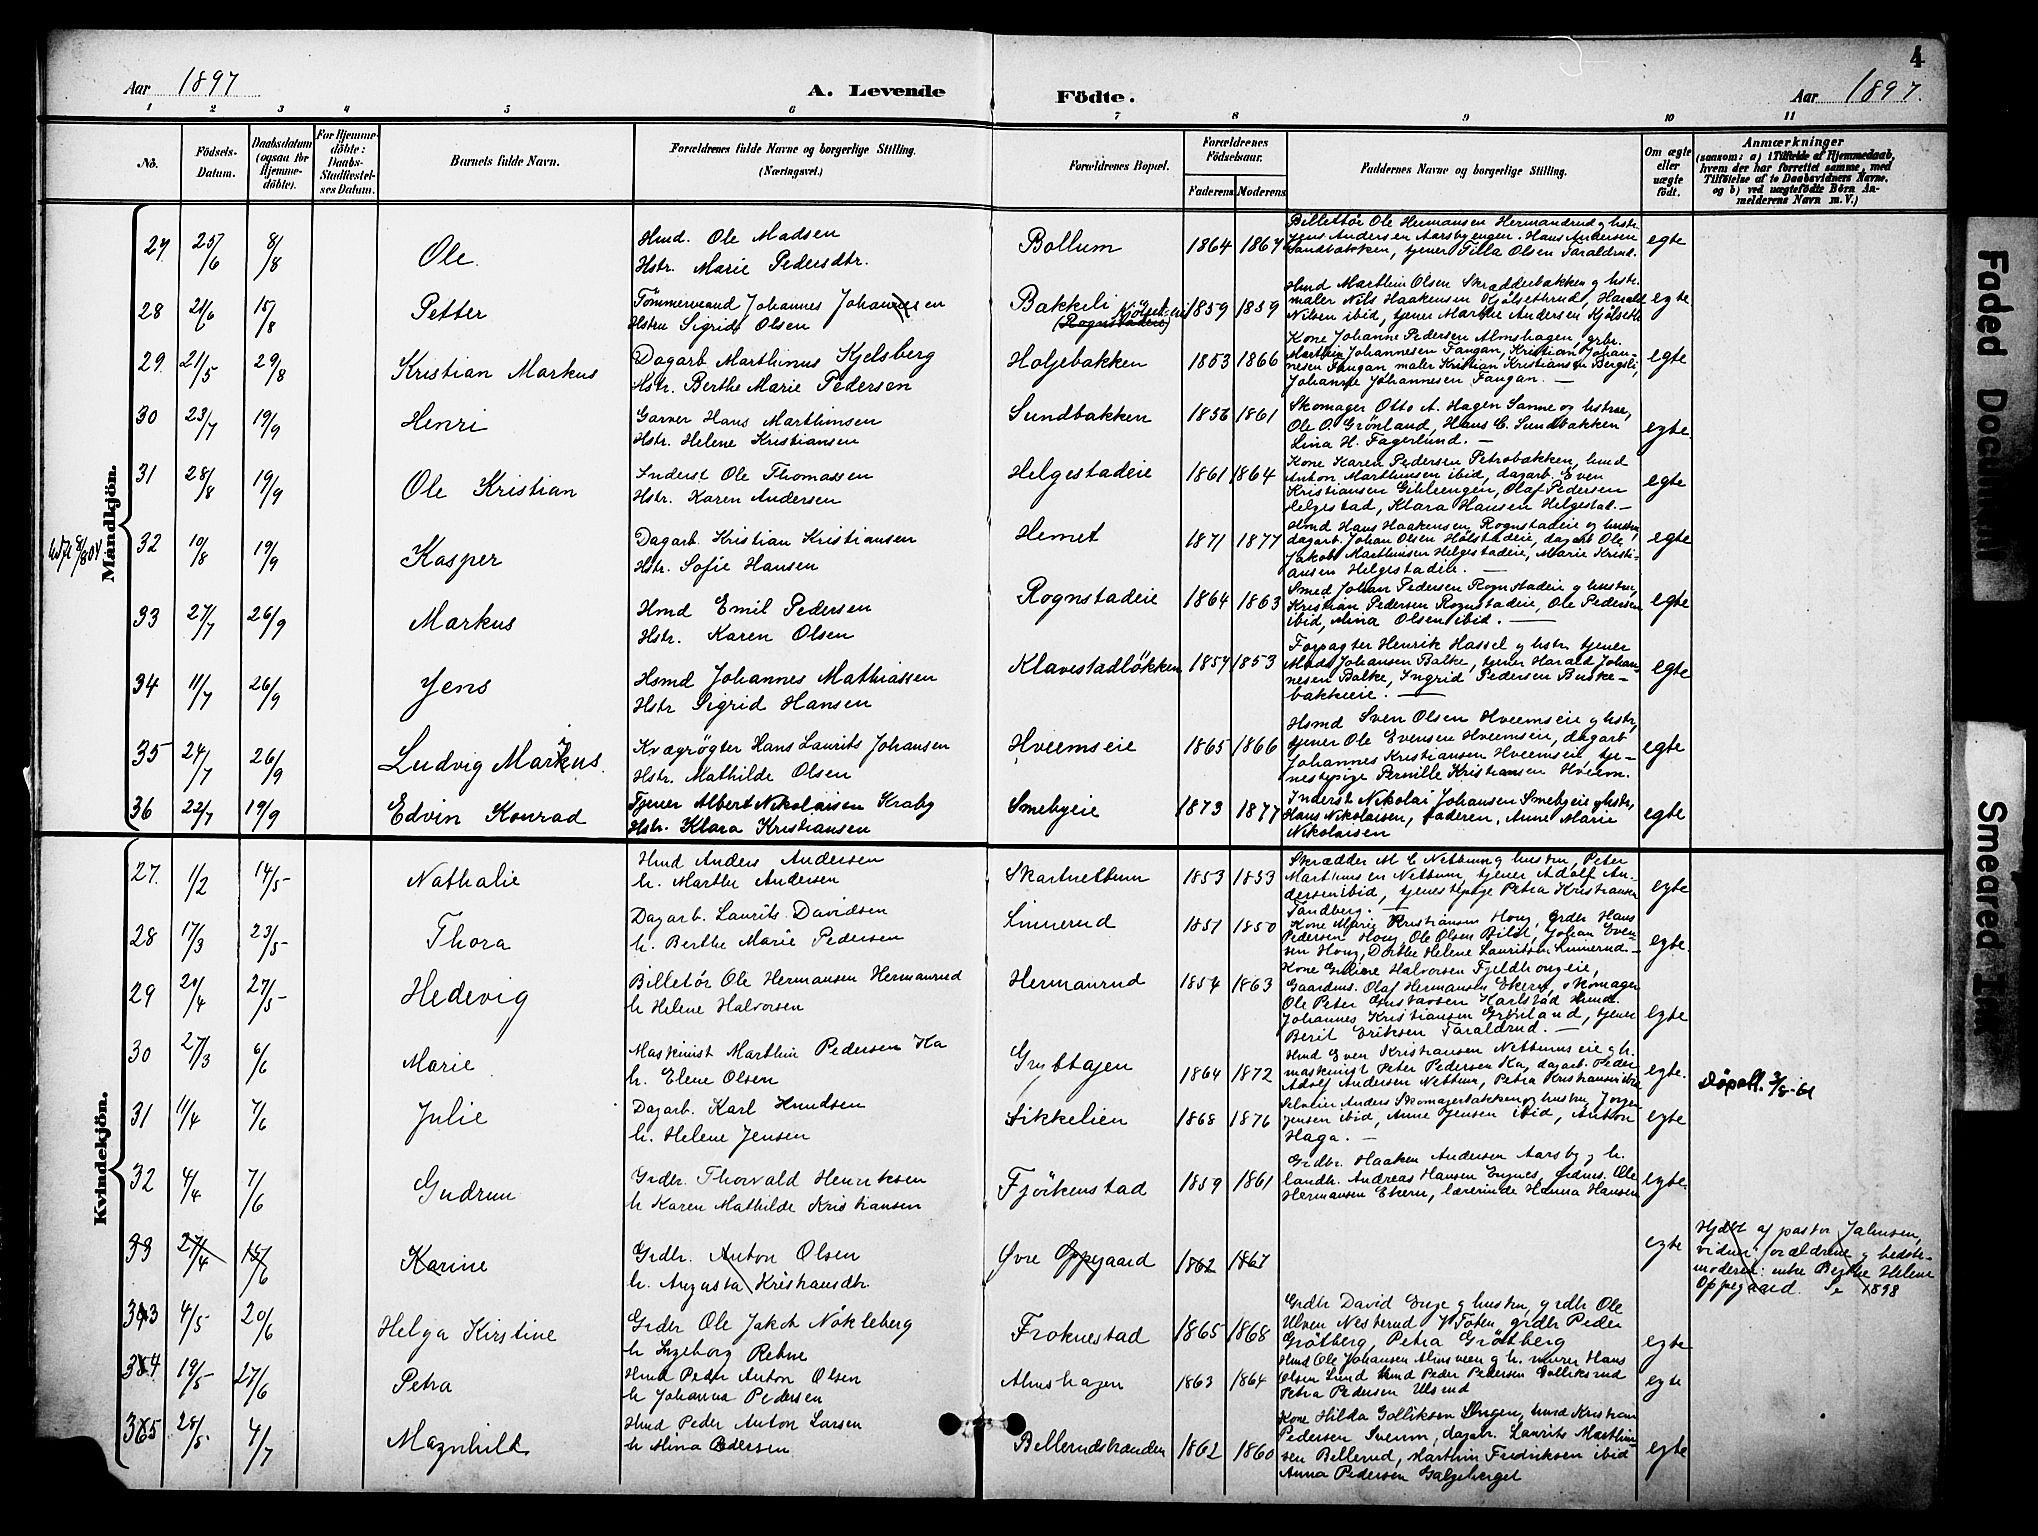 4
Aar 1897 A. Levende Födte. Aar 1897.
1 2 3 4 5 6 7 8 9 10 11
No.
Födsels-
Datum.
Daabsdatum
(ogsaa for
Hjemme-
döbte).
For Hjemme-
döbte:
Daabs-
Stadfæstel-
ses Datum.
Barnets fulde Navn.
Forældrenes fulde Navne og borgerlige Stilling.
(Næringsvei.)
Forældrenes Bopæl.
Forældrenes
Födselsaar.
Faderens Moderens
Faddernes Navne og borgerlige Stilling.
Om ægte
eller
uægte
födt.
Anmærkninger
(saasom: a) i Tilfælde af Hjemmedaab,
hvem der har forrettet samme, med
Tilföielse af to Daabsvidners Navne,
og b) ved uægtefödte Börn An-
melderens Navn m. V.)
Mandkjön.
27 25/6 8/8 Ole.
Hmd. Ole Madsen
Hstr. Marie Pedersdtr.
Bollum 1864 1867
Billettör Ole Hermansen Hermanrud g hstr.
Jens Andersen Aarsbyengen. Hans Andersen
Sandbakken, tjener Tilla Olsen Taraldrud.
egte
28 21/6 15/8 Petter
Tömmermand Johannes Johannesen
Hstru Sigrid Olsen
Bakkeli
(Rognstadeie)
1859 1859
Hmd Marthin Olsen Skrædderbakken g hstr.
maler Nils Haakensen Hjölsethrud, Harald
Nilsen ibid, tjener Marthe Andersen Hjölseth
egte
29. 21/5 29/8 Kristian Markus
Dagarb Marthinus Kjelsberg
Hstr. Berthe Marie Pedersen
Holjebakken 1853 1866
Kone Johanne Pedersen Almshagen, grbr.
Marthin Johannesen Fangan, Kristian Johan-
nesen Fangan, maler Kristian Kristiansen Bergsli,
Johanne Johannesen Fangan. —
egte
30 23/7 19/9 Henri
Garver Hans Marthinsen
Hstr. Helene Kristiansen
Sundbakken 1856 1861
Skomager Otto A. Hagen Sanne og hstrue,
Ole O. Grönland, Hans C. Sundbakken
Lina H. Fagerlund. —
egte.
31 28/8 19/9 Ole Kristian
Inderst Ole Thomassen
Hstr. Karen Andersen
Helgestadeie 1861 1864
Kone Karen Pedersen Petrobakken, hmd
Anton Marthinsen ibid, dagarb. Even
Kristiansen Gihlrengen, Olaf Pedersen
Helgestad, Klara Hansen Helgestad. —
egte
32 10/8 19/9 Kasper
Dagarb. Kristian Kristiansen
Hstr. Sofie Hansen
Hemet 1871 1877
Hmd Hans Haakensen, Rognstadeie og hustru,
dagarb. Johan Olsen Holstadeie, dagarb Ole
Jakob Marthinsen Helgestadeie, Marie Kristi-
ansen Helgestadeie. —
egte
33 27/7 26/9 Markus
Hmd Emil Pedersen
Hstr. Karen Olsen
Rognstadeie 1864 1863
Smed Johan Pedersen Rognstadeie g hustru,
Kristian Pedersen Rognstadeie, Ole Pedersen
ibid, Mina Olsen ibid. —
egte
34 11/7 26/9 Jens
Hsmd Johannes Mathiassen
Hstr Sigrid Hansen
Klavestadlökken 1857 1853
Forpagter Henrik Hassel g hstr. tjener
Mads Johansen Balke, tjener Harald Johan-
nesen Balke, Ingrid Pedersen Buske-
bakkeie. —
egte
35 24/7 26/9 Ludvig Markus.
Kvægrögter Hans Laurits Johansen
Hstr. Mathilde Olsen
Hveemseie 1865 1866
Hsmd Sven Olsen Hveemseie g hstr,
tjener Ole Evensen Hveemseie, dagarb
Johannes Kristiansen Hveemseie, tje-
nestepige Pernille Kristiansen Hveem.
egte
36 22/7 19/9 Edvin Konrad
Tjener Albert Nikolaisen Kraby
Hstr. Klara Kristiansen
Smebyeie 1873 1877
Inderst Nikolai Johansen Smebyeie g hstr,
Hans Nikolaisen, faderen, Anne Marie
Nikolaisen
egte
Kvindekjön.
27. 1/2 14/5 Nathalie
Hmd Anders Andersen
h. Marthe Andersen
Skartnettum 1853 1853
Skrædder M C Nettum g hustru, Peter
Marthinsen Nettum, tjener Adolf An-
dersen ibid, tjenestepige Petra Kristiansen
Sandberg. —
egte
28 17/3 23/5 Thora
Dagarb. Laurits Davidsen
h. Berthe Marie Pedersen
Linnerud 1851 1850
Kone Marie Kristiansen Houg, Grdbr Hans
Pedersen Houg, Ole Olsen Bilit, Johan Even-
sen Houg, Dorthe Helene Lauritsen Linnerud —
egte.
29 20/4 27/5 Hedevig
Billetör Ole Hermansen Hermanrud
h Helene Halvorsen
Hermanrud 1854 1863
Kone Guline Halvorsen Fjeldhougeie,
Gaardms. Olaf Hermansen Ekern, skomager
Ole Peter Gustavsen Karlstad Hmd.
Johannes Kristiansen Grönland, tjener
Berit Eriksen Taraldrud. —
egte
30 27/3 6/6 Marie
Maskinist Marthin Pedersen Ka
h. Elene Olsen
1864 1872
Hmd Even Kristiansen Nettumseie g h.
maskinist Peter Pedersen Ka, dagarb. Peder
Adolf Andersen Nettum, Petra Kristiansen ibid
egte.
31 11/4 7/6 Julie
Dagarb. Karl Knudsen
h. Helene Jensen
Sikkelien 1868 1876
Selveier Anders Skomagerbakken og hustru, Jörgen
Jensen ibid, Anne Jensen ibid, Anton
Haga. —
egte
32 4/4 7/6 Gudrun
Grdbr. Thorvald Henriksen
h Karen Mathilde Kristiansen
Fjörkenstad 1859 1861
Grdbr. Haaken Andersen Aarsby g h.
landh. Andreas Hansen Engnes, grdms. Ole
Hermansen Ekern, lærerinde Hanna Hansen
egte.
33 27/4 Karine
Grdbr. Anton Olsen
h. Augusta Kristiansdtr.
Øvre Oppegaard 1862 1867
egte
Hjdbt af pastor Jahnsen,
vidner: forældrene g bedste-
moderen: enke Berthe Helene
Oppegaard. Se 1898
33 4/5 20/6 Helga Kirstine
Grdbr Ole Jakob Nökleberg
h Ingeborg Rekne
Froknestad 1865 1868
Grdbr David Enge g hustru, grdbr Ole
Ulven Nesterud V. Toten, grdbr Peder
Grötberg, Petra Grötberg
egte
34 19/5 27/6 Petra
Hmd Peder Anton Olsen
h Johanna Pedersen
Almshagen 1863 1864
Hmd Ole Johansen Almsveen g h. murer Hans
Olsen Lund Hmd Peder Pedersen Golliksrud
Petra Pedersen Ulsrud
egte
35 28/5 4/7 Magnhild
Hmd Peder Anton Larsen
h Mina Pedersen
Bellerudstranden 1862 1860
Kone Hilda Golliksen Engen, hmd Kristian
Pedersen Sveum, dagarb. Laurits Marthin-
sen Bellerud, Marthin Fredriksen ibid
Anna Pedersen Galgeberget
egte
Faded Document
Smeared Ink